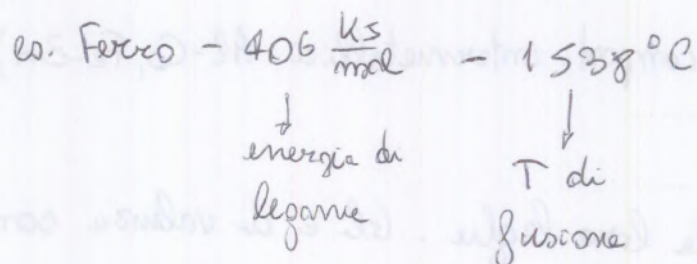 es. Ferro - 406 KJ/mol - 1538 °C
energia di legame
T di fusione